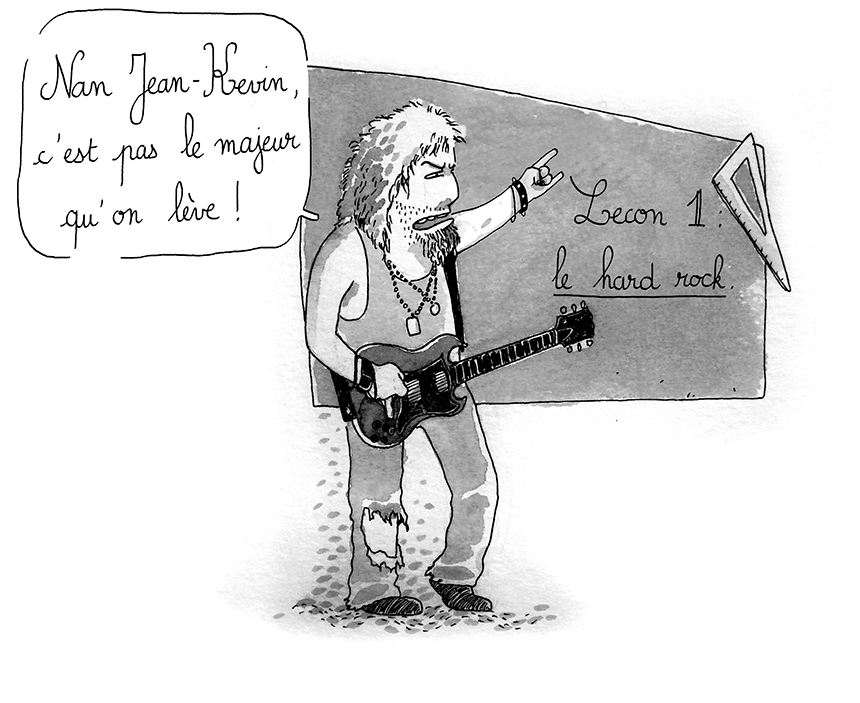 Nan Jean-Kevin,
c'est pas le majeur
qu'on lève !
Lecon 1 :
le hard rock.